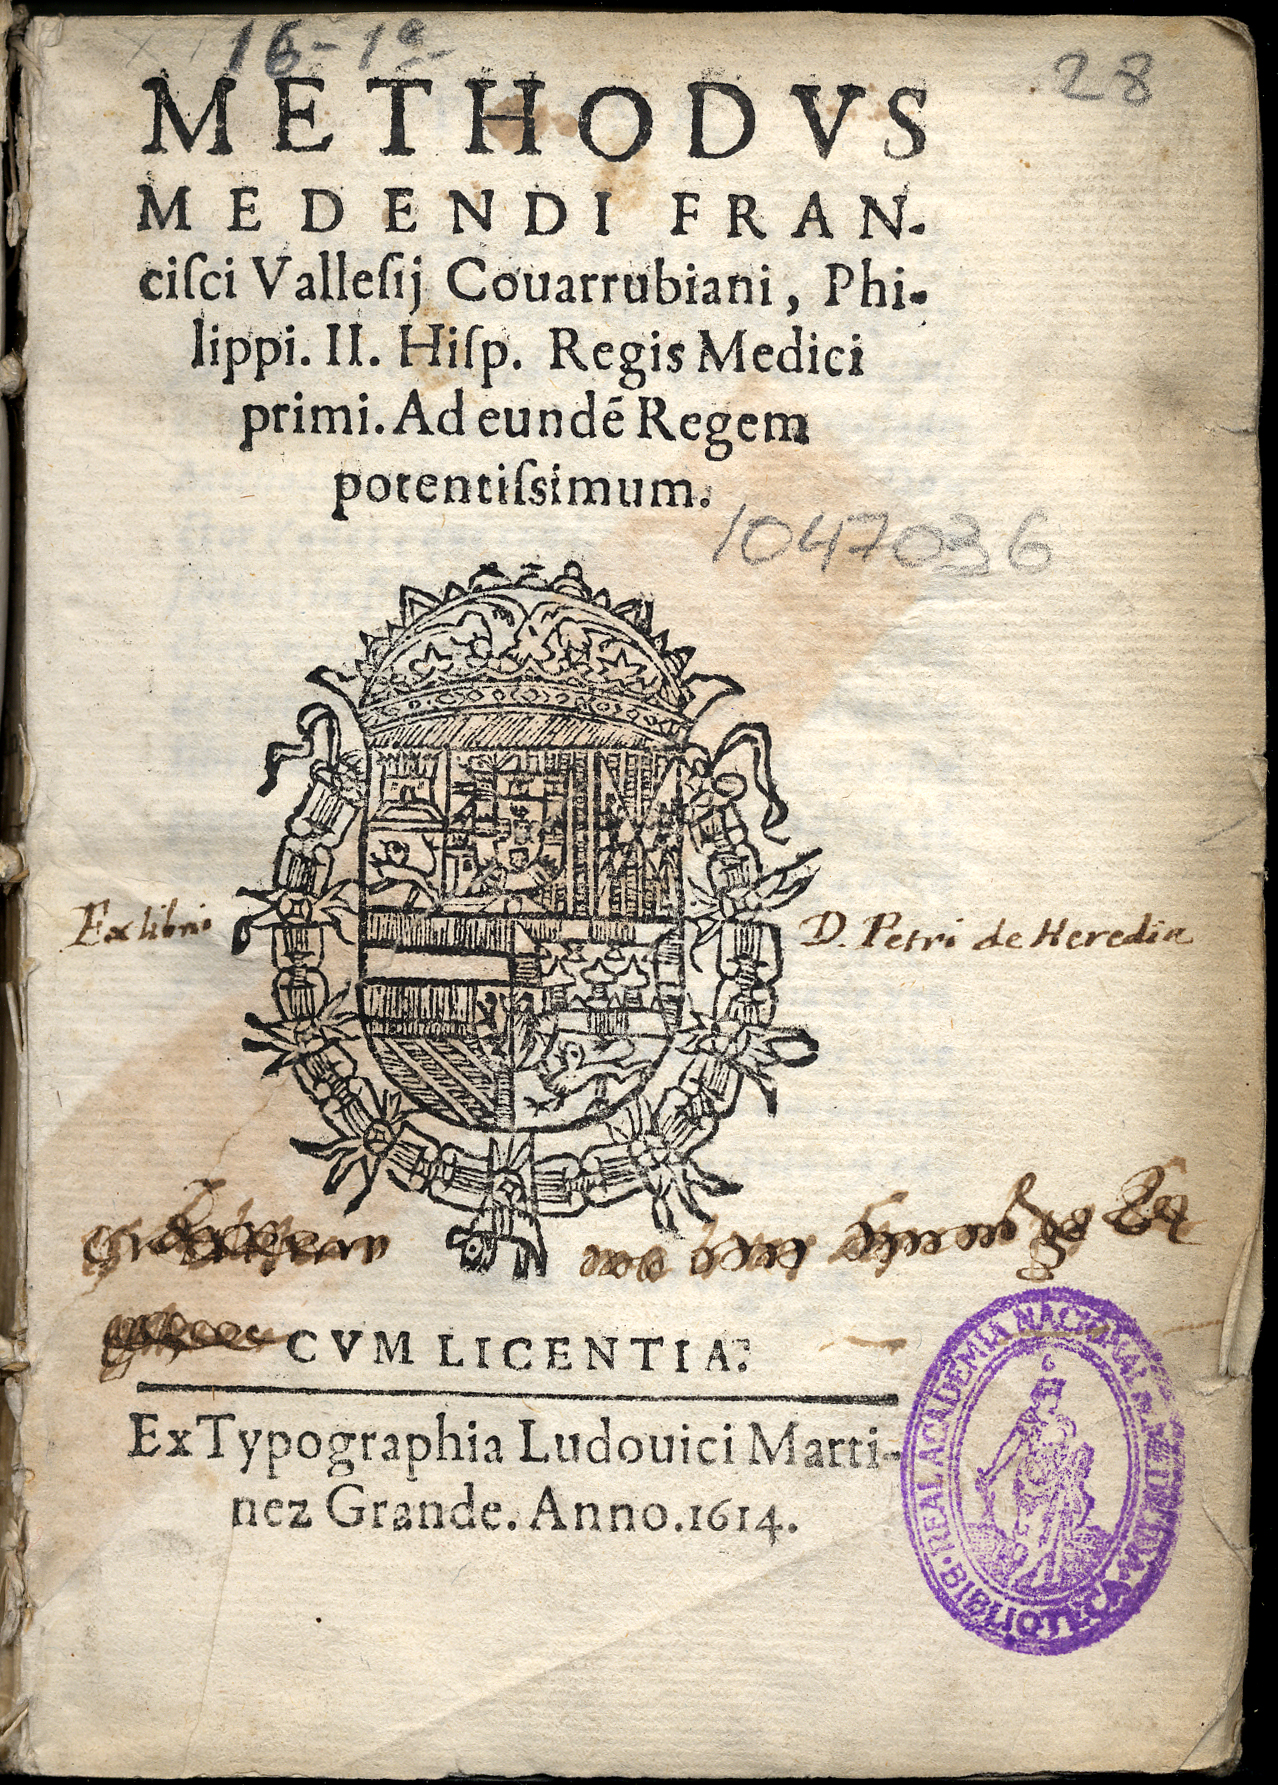 16-1ª
28
METHODVS
MEDENDI FRAN-
ciſci Valleſij Couarrubiani, Phi-
lippi. II. Hiſp. Regis Medici
primi. Ad eundē Regem
potentiſsimum.
1047036
Ex libris D. Petri de Heredia
CVM LICENTIA.
Ex Typographia Ludouici Marti-
nez Grande. Anno. 1614.
REAL ACADEMIA NACIONAL DE MEDICINA
BIBLIOTECA